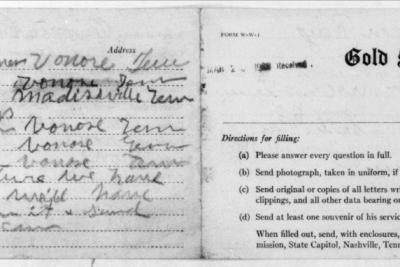 Address
Vonore Tenn
Vonore Tenn
Madisonville Tenn
Vonore Tenn
Vonore Tenn
Vonore Tenn
we have
have
it & send
FORM W-W-1
Received.
Gold S
Directions for filling:
(a) Please answer every question in full.
(b) Send photograph, taken in uniform, if
(c) Send original or copies of all letters wri
clippings, and all other data bearing on
(d) Send at least one souvenir of his servic
When filled out, send, with enclosures,
mission, State Capitol, Nashville, Tenn